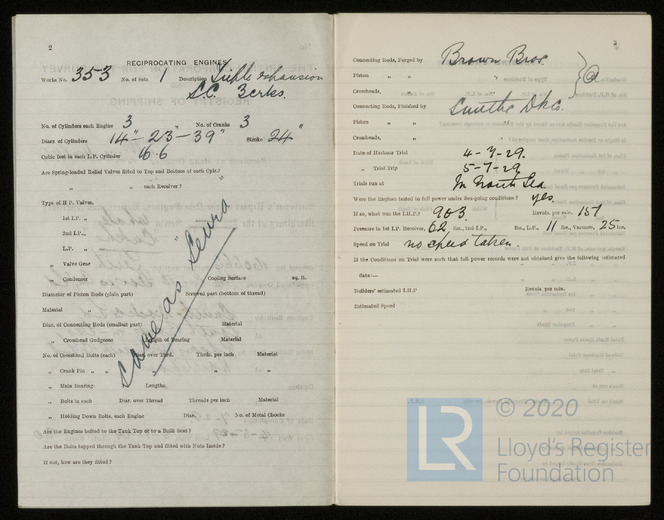 2
RECIPROCATING ENGINES
Works No. 353 No. of Sets 1 Description Triple expansion
S.C. 3 crks.
No. of Cylinders each Engine 3 No. of Cranks 3
Diars. of Cylinders 14"-23-39" Stroke 24"
Cubic feet in each L.P. Cylinder 16.6
Are Spring-loaded Relief Valves fitted to Top and Bottom of each Cylr.?
" " each Receiver?
Type of H P. Valves,
1st I.P. "
2nd I.P. "
L.P. "
" Valve Gear
" Condenser Cooling Surface sq. ft.
Diameter of Piston Rods (plain part) Screwed part (bottom of thread)
Material "
Diar. of Connecting Rods (smallest part) Material
" Crosshead Gudgeons Length of Bearing Material
No. of Crosshead Bolts (each) Diar. over Thrd. Thrds. per inch Material
" Crank Pin " " " " "
" Main Bearings Lengths
" Bolts in each Diar. over Thread Threads per inch Material
" Holding Down Bolts, each Engine Diar. No. of Metal Chocks
Are the Engines bolted to the Tank Top or to a Built Seat?
Are the Bolts tapped through the Tank Top and fitted with Nuts Inside?
If not, how are they fitted?
Same as
3
Connecting Rods, Forged by Brown Bros.
Piston " "
Crossheads, "
Connecting Rods, Finished by Smiths D.k Co.
Piston " "
Crossheads, "
Date of Harbour Trial 4-7-29.
" Trial Trip 5-7-29
Trials run at In North Sea
Were the Engines tested to full power under Sea-going conditions? yes.
If so, what was the I.H.P.? 903 Revols. per min. 157
Pressure in 1st I.P. Receiver, 62 lbs., 2nd I.P., lbs., L.P., 11 lbs., Vacuum, 25 ins.
Speed on Trial no speed taken
If the Conditions on Trial were such that full power records were not obtained give the following estimated
data:—
Builders' estimated I.H.P Revols. per min.
Estimated Speed
LR
© 2020
Lloyd's Register
Foundation